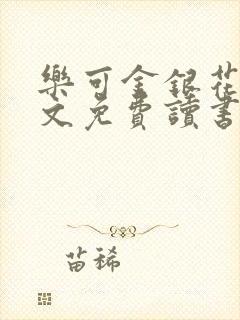 樂可金銀花
文免費讀書
苗稀